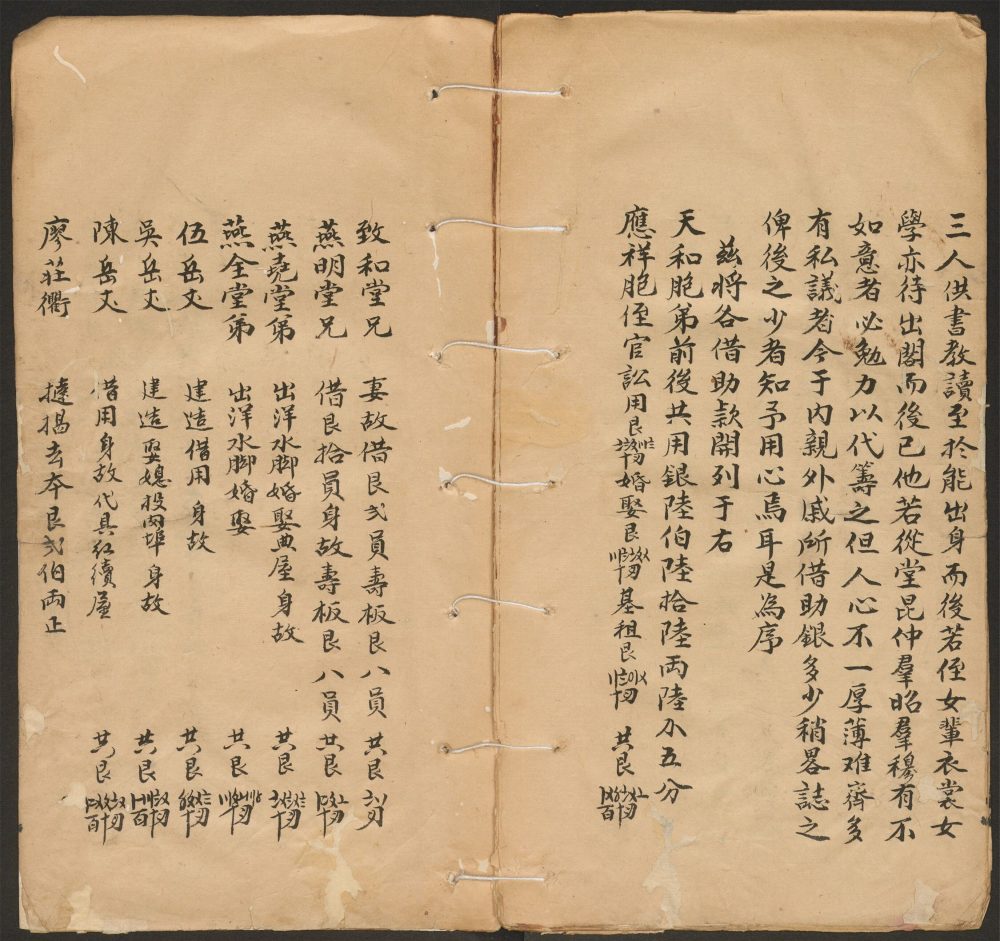 三人供書教讀至於能出身而後若侄女輩衣裳女
學亦待出閣而後已他若從堂昆仲羣昭羣穆有不
如意者必勉力以代籌之但人心不一厚薄难齊多
有私議者今于内親外戚所借助銀多少稍畧誌之
俾後之少者知予用心焉耳是為序
兹將各借助款開列于右
天和胞弟前後共用銀陸伯陸拾陸両陸小五分
應祥胞侄官訟用艮 婚娶艮 基祖艮 共艮
致和堂兄 妻故借艮弍員壽板艮八員 共艮
燕明堂兄 借艮拾員身故壽板艮八員 共艮
燕堯堂弟 出洋水脚婚娶典屋身故 共艮
燕全堂弟 出洋水脚婚娶 共艮
伍岳丈 建造借用身故 共艮
吳岳丈 建造娶媳投 埠身故 共艮
陳岳丈 借用身故代具 續屋 共艮
廖莊衢 揭去本艮弍伯両正